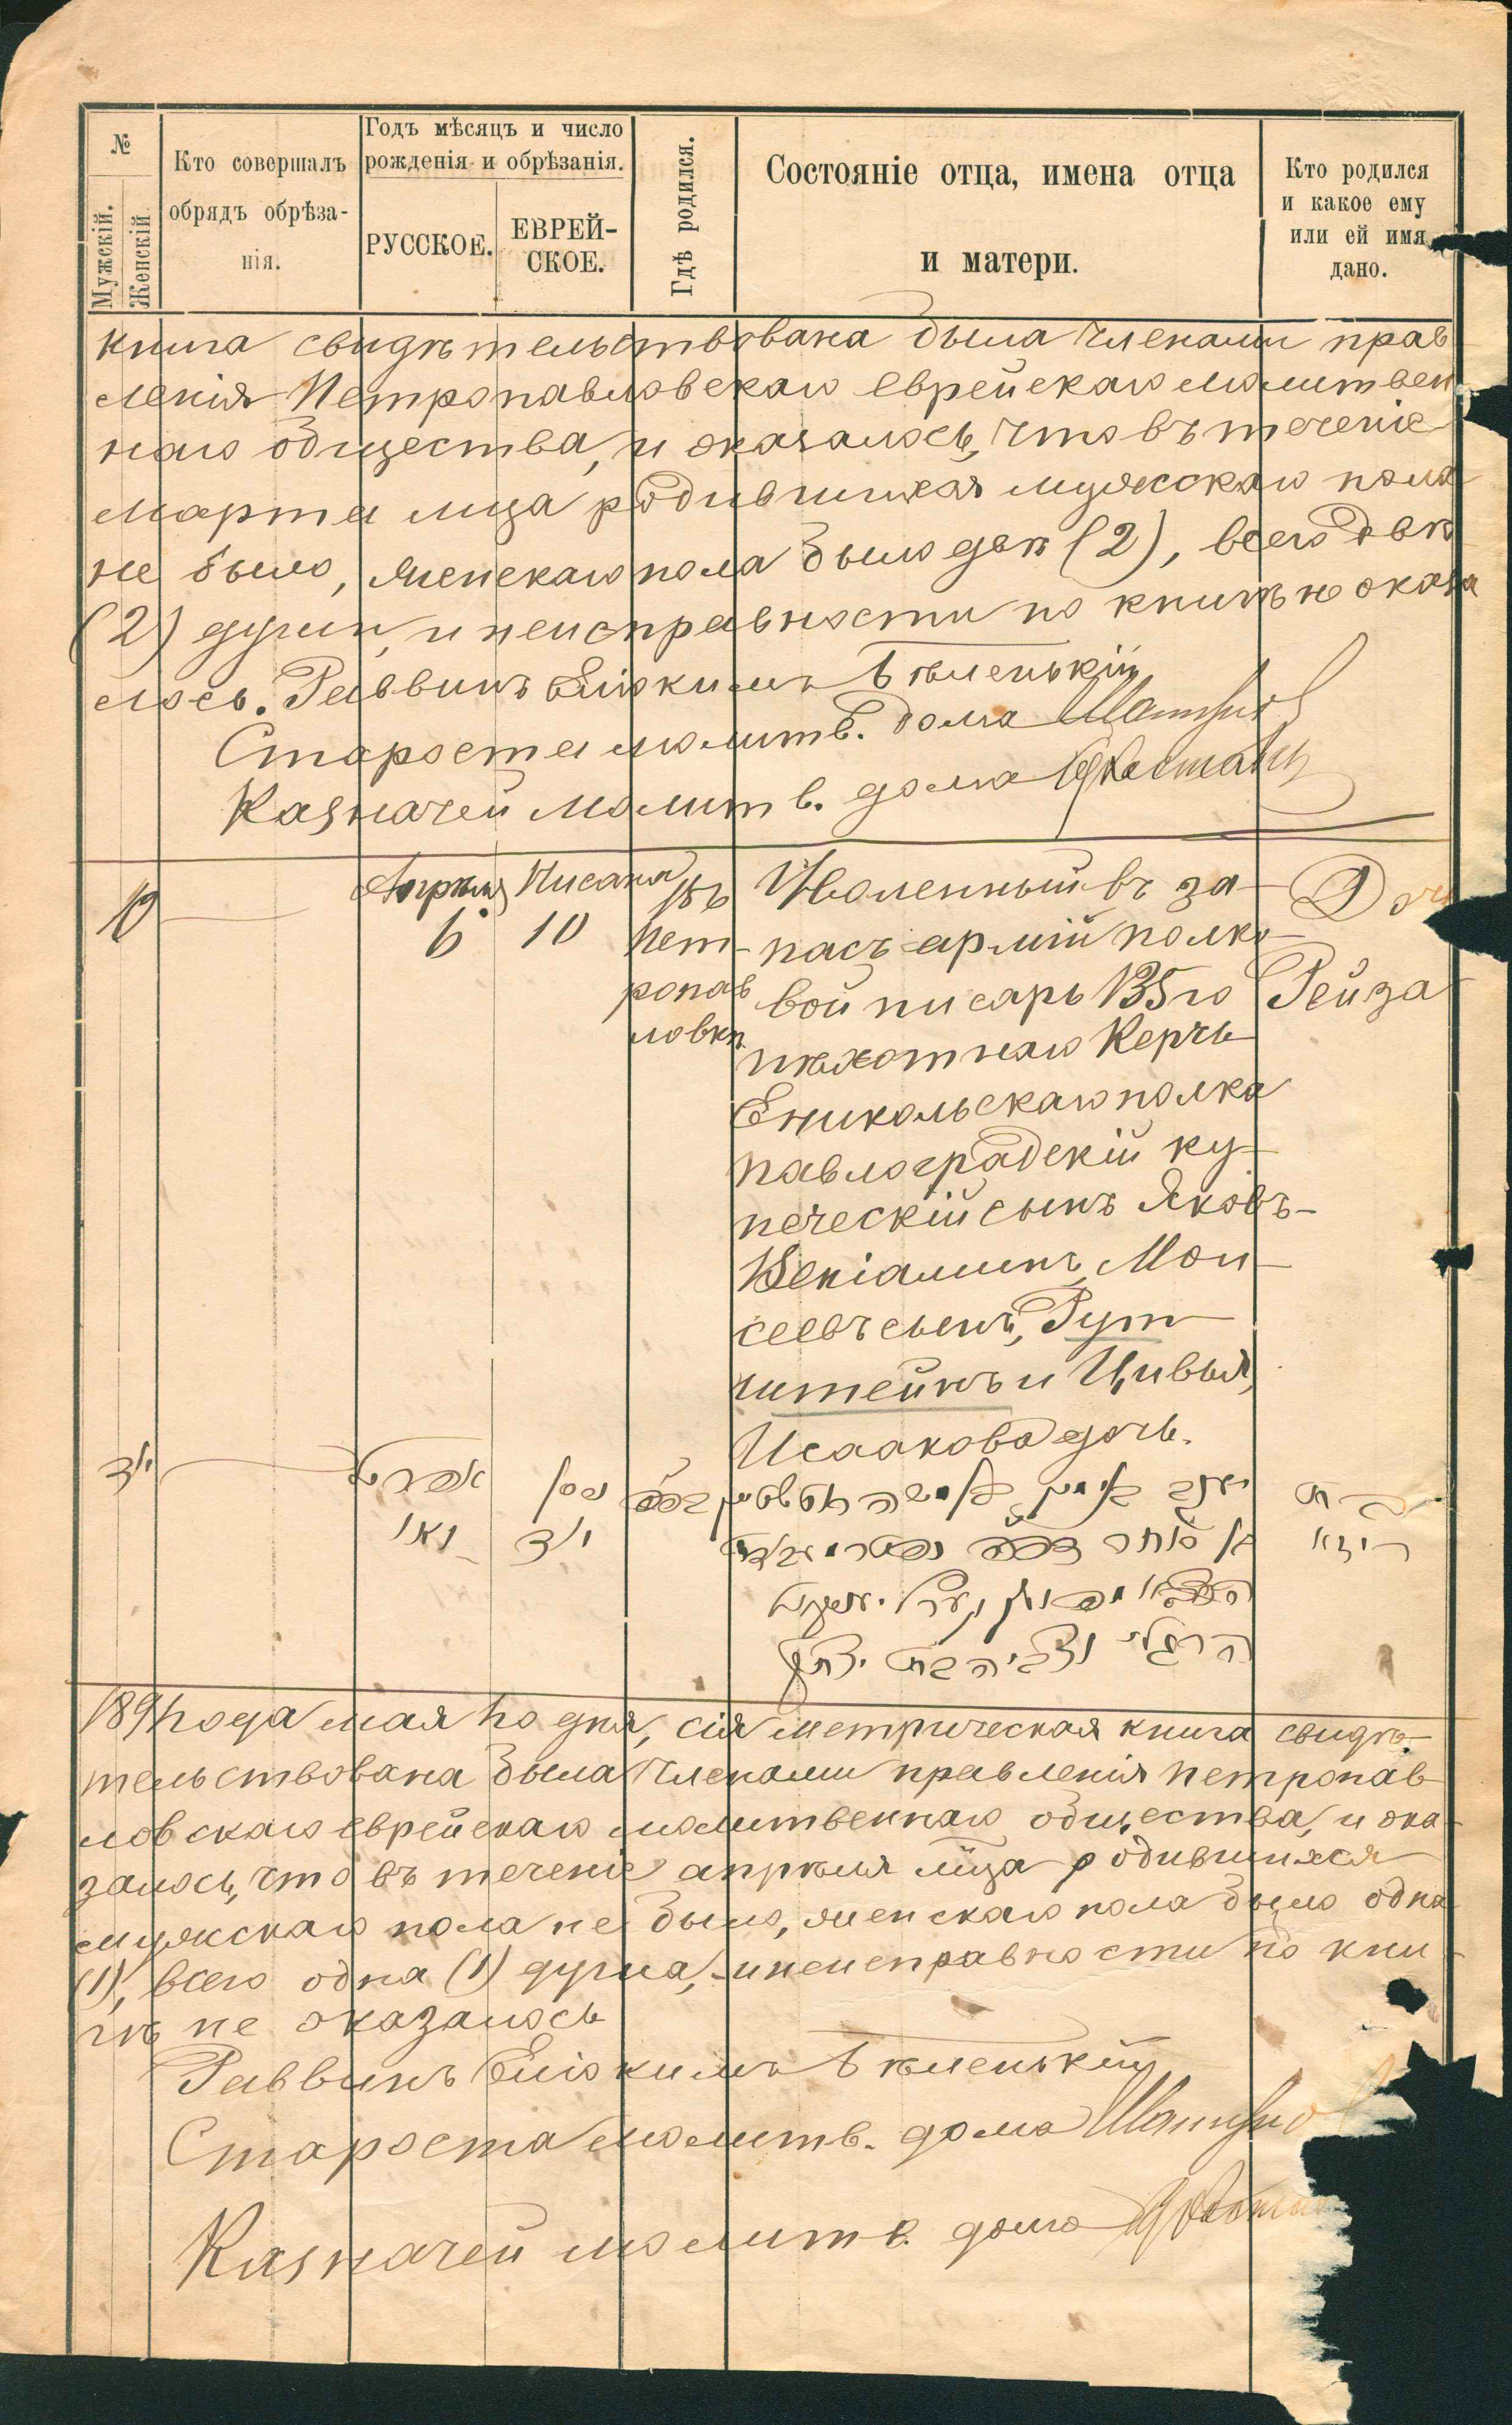 №
Мужскій.
Женскій
Кто совершалъ
обрядъ обрѣза-
нія.
Годъ мѣсяцъ и число
рожденія и обрѣзанія.
РУССКОЕ.
ЕВРЕЙ-
СКОЕ.
Гдѣ родился.
Состояніе отца, имена отца
и матери.
Кто родился
и какое ему
или ей имя
дано.
книга свидѣтельствована была членами прав
ленія Петропавловскаго еврейскаго молитвен
наго общества, и оказалось, что въ теченіе
марта мца родившихся мужскаго пола
не было, женскаго пола было двѣ (2), всего двѣ
(2) души, и неисправности по книгѣ не оказа
лось. Раввинъ Еліокимъ Бѣленькій
Староста молитв. дома
Казначей молитв. дома
Апрѣля
6
Нисана
10
Въ
Пет-
ропав
ловкѣ
Уволенный въ за-
пасъ арміи полко-
вой писарь 135го
пѣхотнаго Керчь
Еникольскаго полка
павлоградскій ку-
печескій сынъ Яковъ-
Веніаминъ, Мои-
сеевъ сынъ, Рут
штейнъ и Цивья,
Исаакова дочь.
Дочь
Рейза
יוד
אפריל
ניסן
יוד
בת
רייזא
1891 года мая 1го дня, сія метрическая книга свидѣ-
тельствована была членами правленія Петропав
ловскаго еврейскаго молитвеннаго общества, и ока-
залось, что въ теченіе апрѣля мца родившихся
мужскаго пола не было, женскаго пола было одна
(1), всего одна (1) душа, и неисправности по кни-
гѣ не оказалось
Раввинъ Еліокимъ Бѣленькій
Староста молитв. дома
Казначей молитв. дома